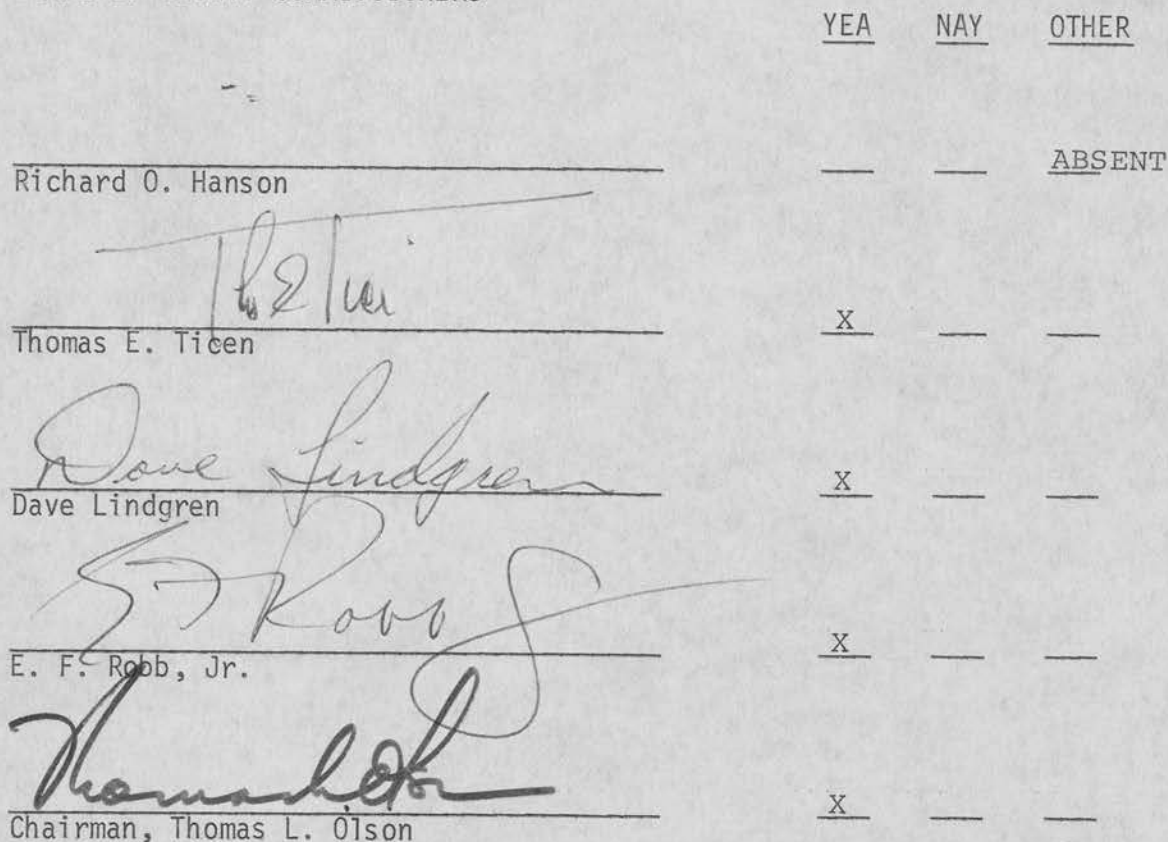 YEA NAY OTHER
ABSENT
Richard O. Hanson
Thos E Ticen
X
Thomas E. Ticen
Dave Lindgren
X
Dave Lindgren
E F Robb Jr
X
E. F. Robb, Jr.
Thomas L Olson
X
Chairman, Thomas L. Olson